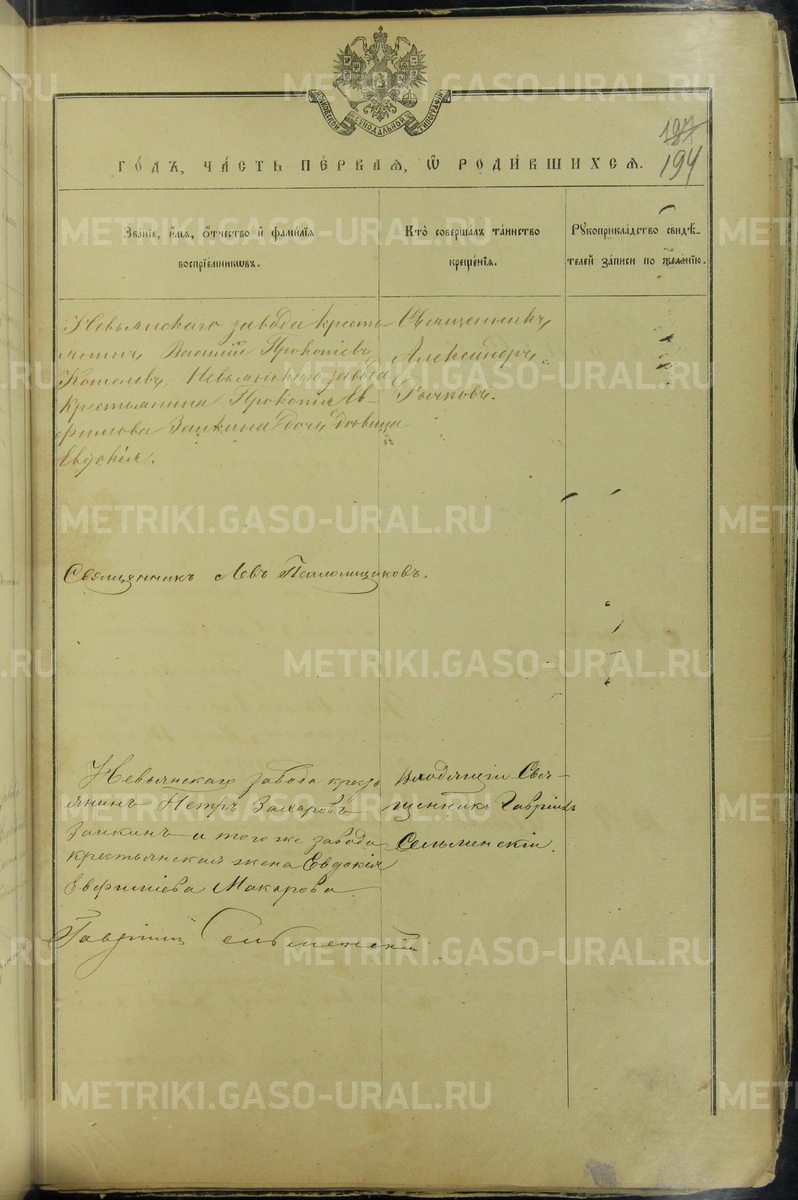 МОСКОВСКОЙ СѴНОДАЛЬНОЙ ТИПОГРАФІИ
187
194
ГОДЪ, ЧАСТЬ ПЕРВАЯ, Ѡ РОДИВШИХСЯ.
Званіе, имя, отчество и фамилія воспріемниковъ.
Кто совершалъ таинство крещенія.
Рукоприкладство свидѣтелей записи по желанію.
Невьянскаго завода кресть-
янинъ Василій Прокопіевъ
Кошелевъ, Невьянскаго завода
крестьянина Прокопія Ев-
фимова Заикина дочь девица
Евдокія.
Священникъ
Александръ
Священникъ Левъ Псаломщиковъ.
Невьянскаго завода кресть
янинъ Петръ Захаровъ
Заикинъ и того же завода
крестьянская жена Евдокія
Евфиміева Макарова.
Свя-
щенникъ Гавріилъ
Сельменскій.
Гавріилъ Сельменскій
METRIKI.GASO-URAL.RU